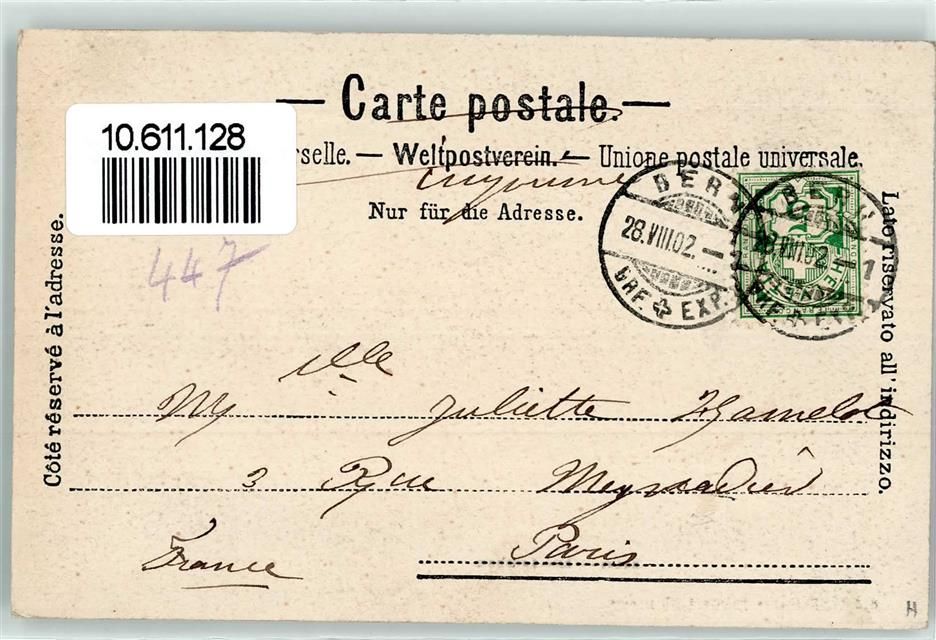 Carte postale.
10.611.128
rselle. — Weltpostverein. — Unione postale universale.
Nur für die Adresse.
Côté réservé à l'adresse.
Lato riservato all' indirizzo.
BERN
28.VIII.02.
BRF. EXP.
BERN 1
28.VIII.02.
447
Mlle Juliette Hamelot
3 Rue Meynadier
Paris
France
H